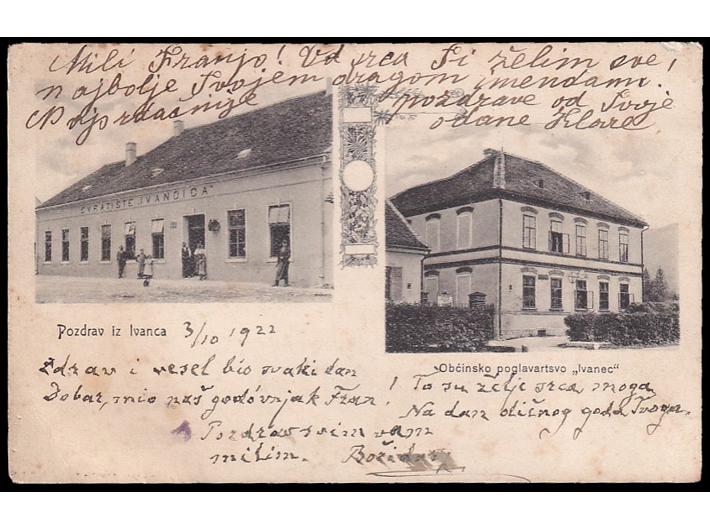 Mili Franjo! Od srca Ti želim sve,
najbolje Tvojem dragom imendanu.
Najsrdačnije pozdrave od Tvoje
odane Klare
SVRATIŠTE „IVANČICA"
Pozdrav iz Ivanca 3/10 1922
Občinsko poglavartsvo „Ivanec"
Zdrav i veseo bio svaki dan
Dobar, mio naš godovnjak Fran!
To su želje srca moga
Na dan dičnog goda Tvoga.
Pozdrav svim vam
milim. Božidar